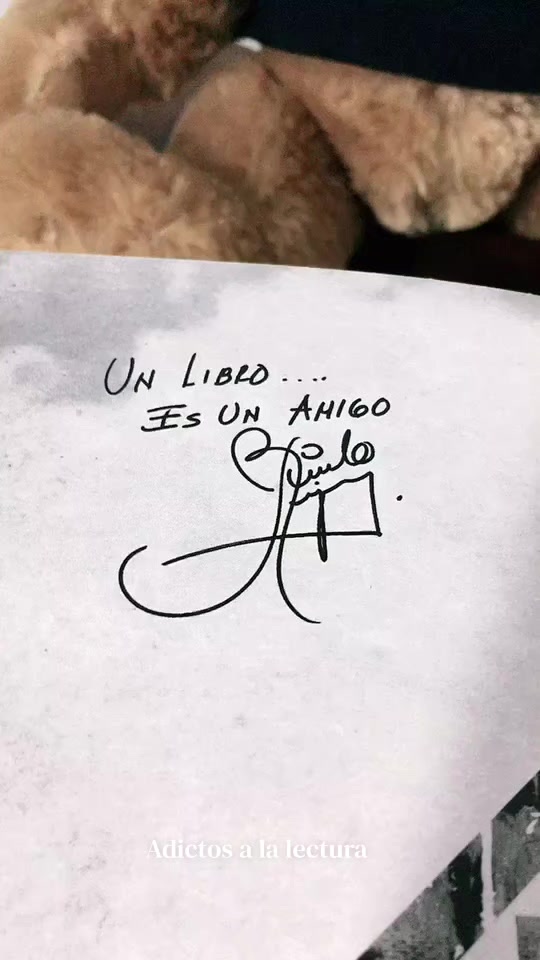 Un Libro....
Es Un Amigo
Adictos a la lectura